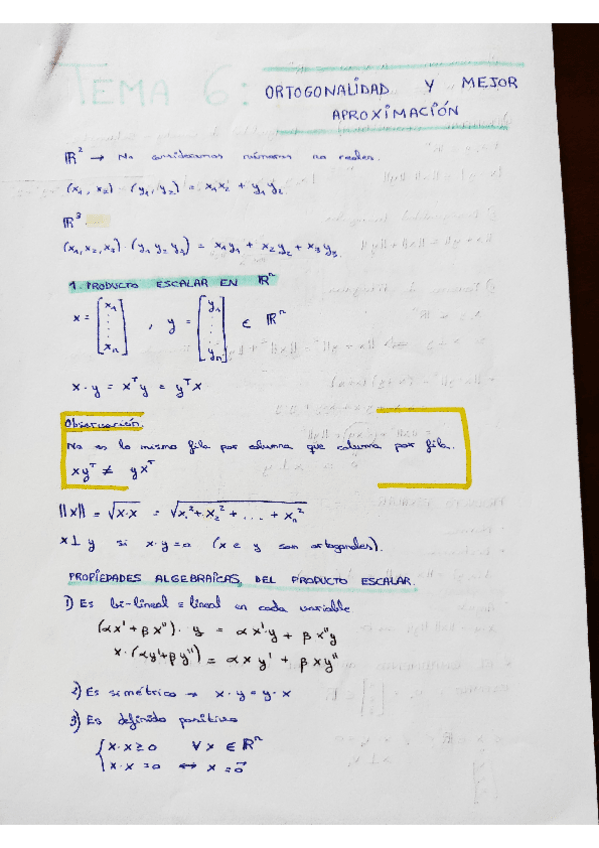 TEMA 6: ORTOGONALIDAD Y MEJOR
APROXIMACIÓN
ℝ² → No consideramos números no reales.
(x₁, x₂) · (y₁, y₂) = x₁x₂ + y₁y₂
ℝ³.
(x₁, x₂, x₃) · (y₁ y₂ y₃) = x₁y₁ + x₂y₂ + x₃y₃.
1. PRODUCTO ESCALAR EN ℝⁿ
x = [x₁ ⋮ xₙ] , y = [y₁ ⋮ yₙ] ∈ ℝⁿ
x · y = xᵀy = yᵀx
Observación.
No es lo mismo fila por columna que columna por fila.
xyᵀ ≠ yxᵀ
||x|| = √x·x = √x₁² + x₂² + ... + xₙ²
x ⊥ y si x·y = 0 (x e y son ortogonales).
PROPIEDADES ALGEBRAICAS, DEL PRODUCTO ESCALAR.
1) Es bi-lineal ≡ lineal en cada variable.
(αx' + βx'') · y = αx'·y + βx''y
x · (αy' + βy'') = αxy' + βxy''
2) Es simétrico → x · y = y · x
3) Es definido positivo
{ x·x ≥ 0 ∀x ∈ ℝⁿ
x·x = 0 ⇔ x = 0⃗